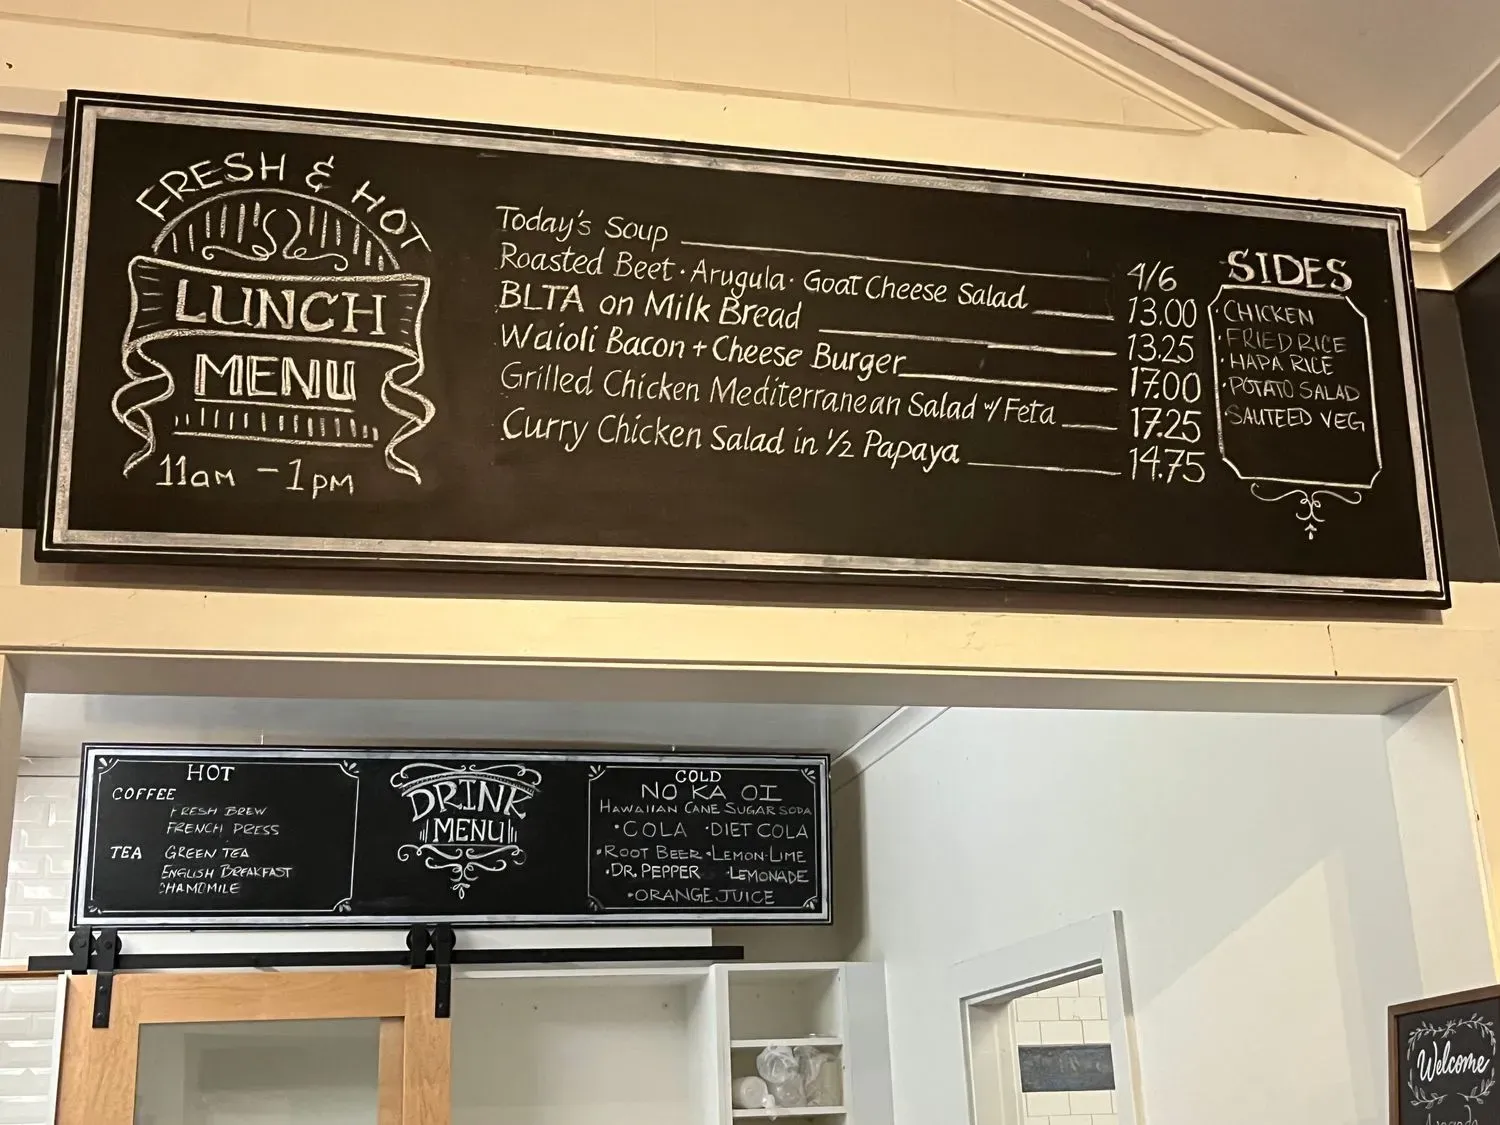 FRESH & HOT
LUNCH
MENU
11am - 1pm
Today's Soup 4/6
Roasted Beet · Arugula · Goat Cheese Salad 13.00
BLTA on Milk Bread 13.25
Waioli Bacon + Cheese Burger 17.00
Grilled Chicken Mediterranean Salad w/ Feta 17.25
Curry Chicken Salad in 1/2 Papaya 14.75
SIDES
· CHICKEN
· FRIED RICE
· HAPA RICE
· POTATO SALAD
SAUTEED VEG
HOT
COFFEE
FRESH BREW
FRENCH PRESS
TEA GREEN TEA
ENGLISH BREAKFAST
CHAMOMILE
DRINK
MENU
COLD
NO KA OI
HAWAIIAN CANE SUGAR SODA
· COLA · DIET COLA
· ROOT BEER · LEMON-LIME
· DR. PEPPER · LEMONADE
· ORANGE JUICE
Welcome